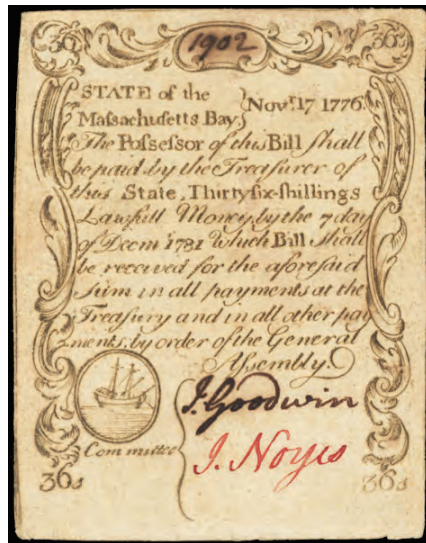 36s 1902 36s
STATE of the
Massachusetts Bay. } Novr. 17 1776
The Poſseſsor of this Bill ſhall
be paid by the Treaſurer of
this State, Thirtyſix-ſhillings
Lawfull Money, by the 7 day
of Decm 1781 Which Bill ſhall
be received for the aforeſaid
ſum in all payments at the
Treaſury and in all other pay
ments, by order of the General
Aſsembly.
J. Goodwin
Committee
J. Noyes
36s 36s